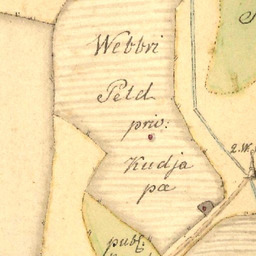 Webbri
Peld
priv:
2.W.
Kudja
pæ
publ.